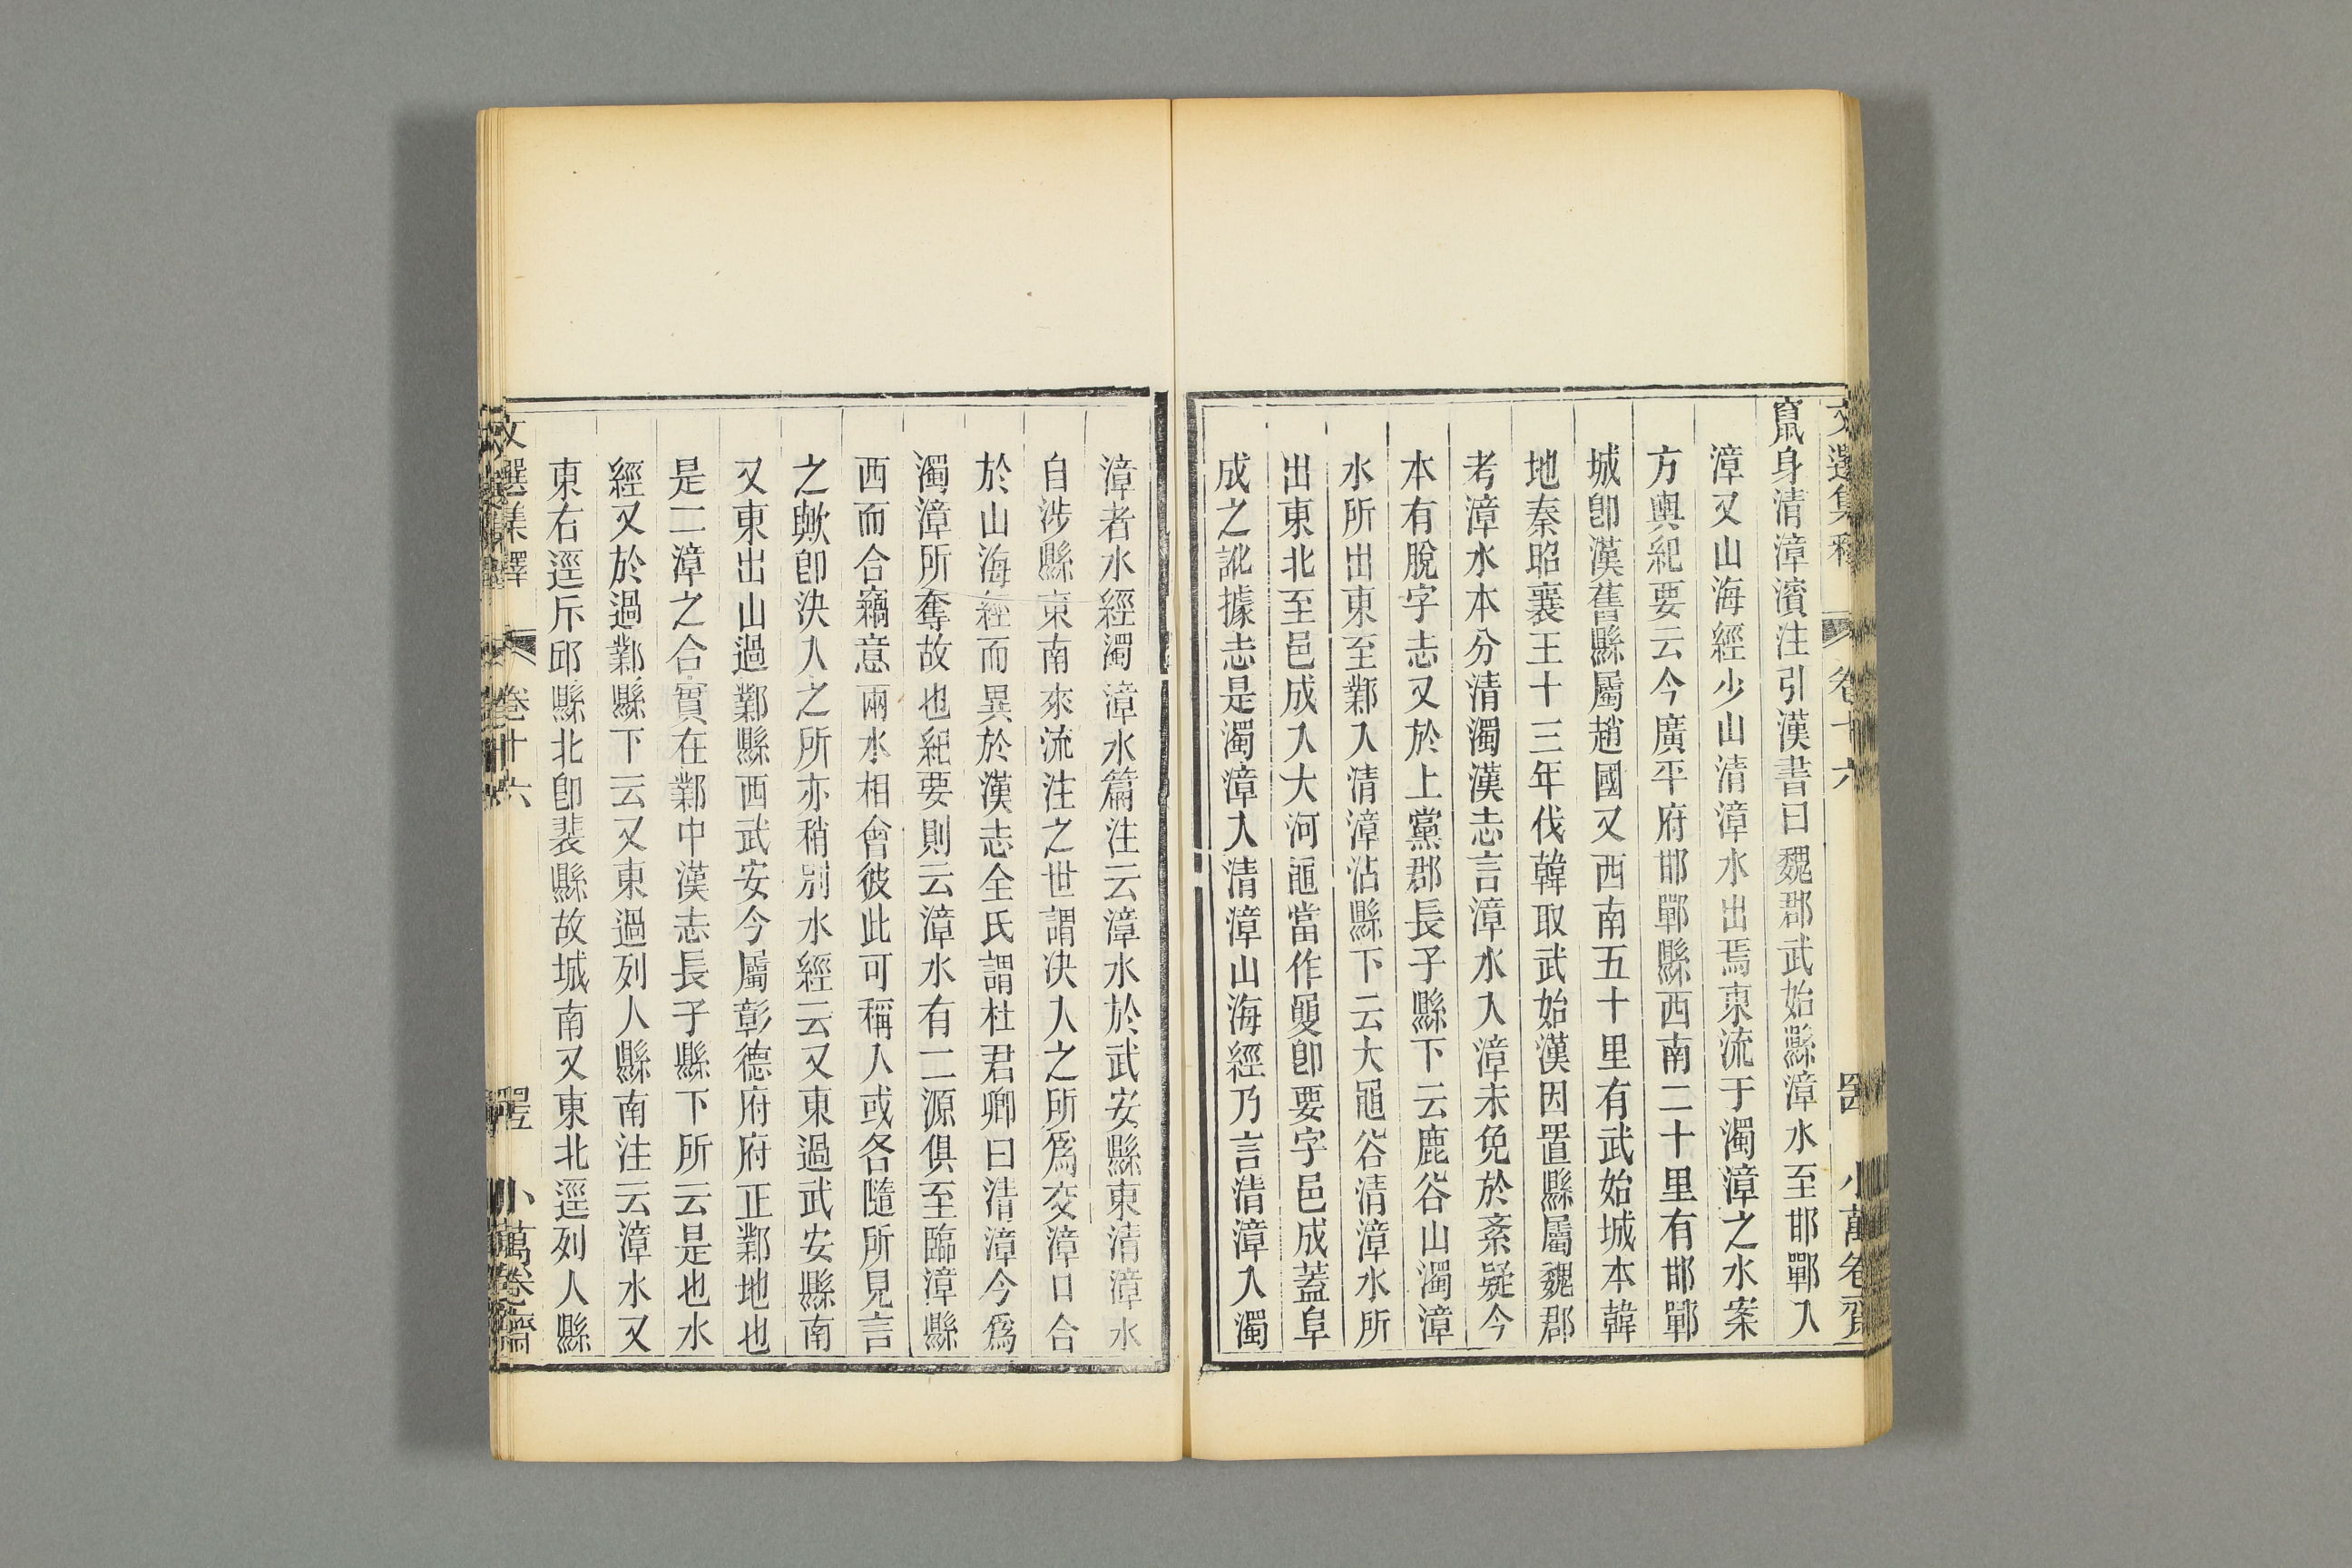 文選集釋 卷十六 小萬卷齋
竄身清漳濱注引漢書曰魏郡武始縣漳水至邯鄲入
漳又山海經少山清漳水出焉東流于濁漳之水案
方輿紀要云今廣平府邯鄲縣西南二十里有邯鄲
城卽漢舊縣屬趙國又西南五十里有武始城本韓
地秦昭襄王十三年伐韓取武始漢因置縣屬魏郡
考漳水本分清濁漢志言漳水入漳未免於紊疑今
本有脫字志又於上黨郡長子縣下云鹿谷山濁漳
水所出東至鄴入清漳沾縣下云大黽谷清漳水所
出東北至邑成入大河黽當作㬰卽要字邑成蓋阜
成之訛據志是濁漳入清漳山海經乃言淸漳入濁
漳者水經濁漳水篇注云漳水於武安縣東清漳水
自涉縣東南來流注之世謂决入之所爲交漳口合
於山海經而異於漢志全氏謂杜君卿曰清漳今爲
濁漳所奪故也紀要則云漳水有二源俱至臨漳縣
西而合竊意兩水相會彼此可稱入或各隨所見言
之歟卽決入之所亦稍別水經云又東過武安縣南
又東出山過鄴縣西武安今屬彰德府府正鄴地也
是二漳之合實在鄴中漢志長子縣下所云是也水
經又於過鄴縣下云又東過列人縣南注云漳水又
東右逕斥邱縣北卽裴縣故城南又東北逕列人縣
文選集釋 卷十六 小萬卷齋